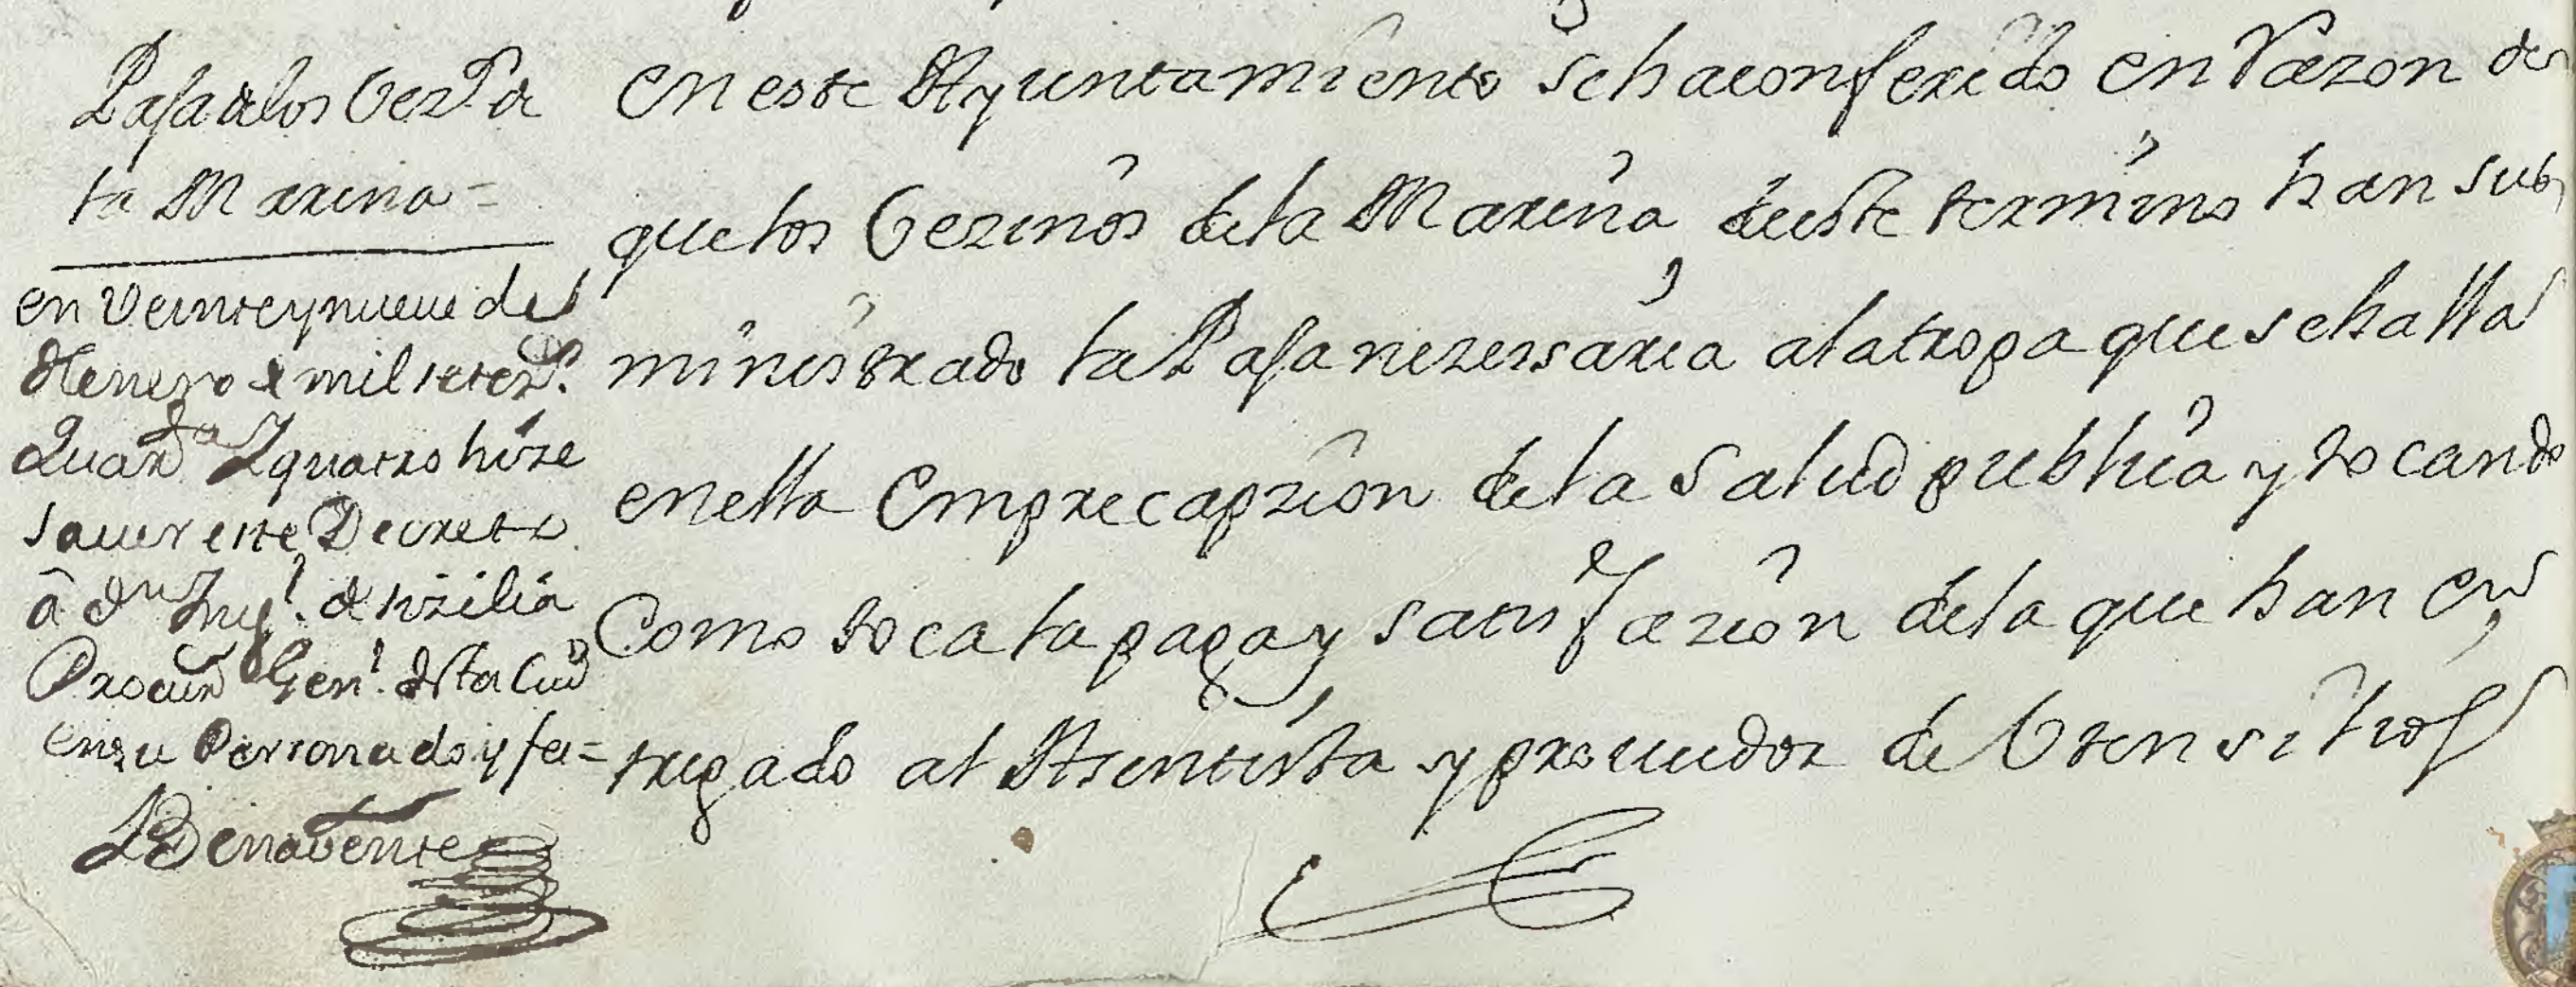 Pasa de los Vez.os de
la Marina =
en Veinte y nueve de
Henero de mil setez.os
Quar.ta y quatro hize
saver este Decreto
â Dn Mig.l de Sizilia
Procur.or Gen.l desta Ciud
en su Persona doy fee =
Benavente
en este Ayuntamiento se ha conferido en Razon de
que los Vezinos de la Marina de este termino han sub
ministrado la Pasa nezessaria a la tropa que se halla
en ella em precapzion de la Salud publica y tocando
Como toca la paga y satisfazion de la que han en
tregado al Asentista y proveedor de Utensilios